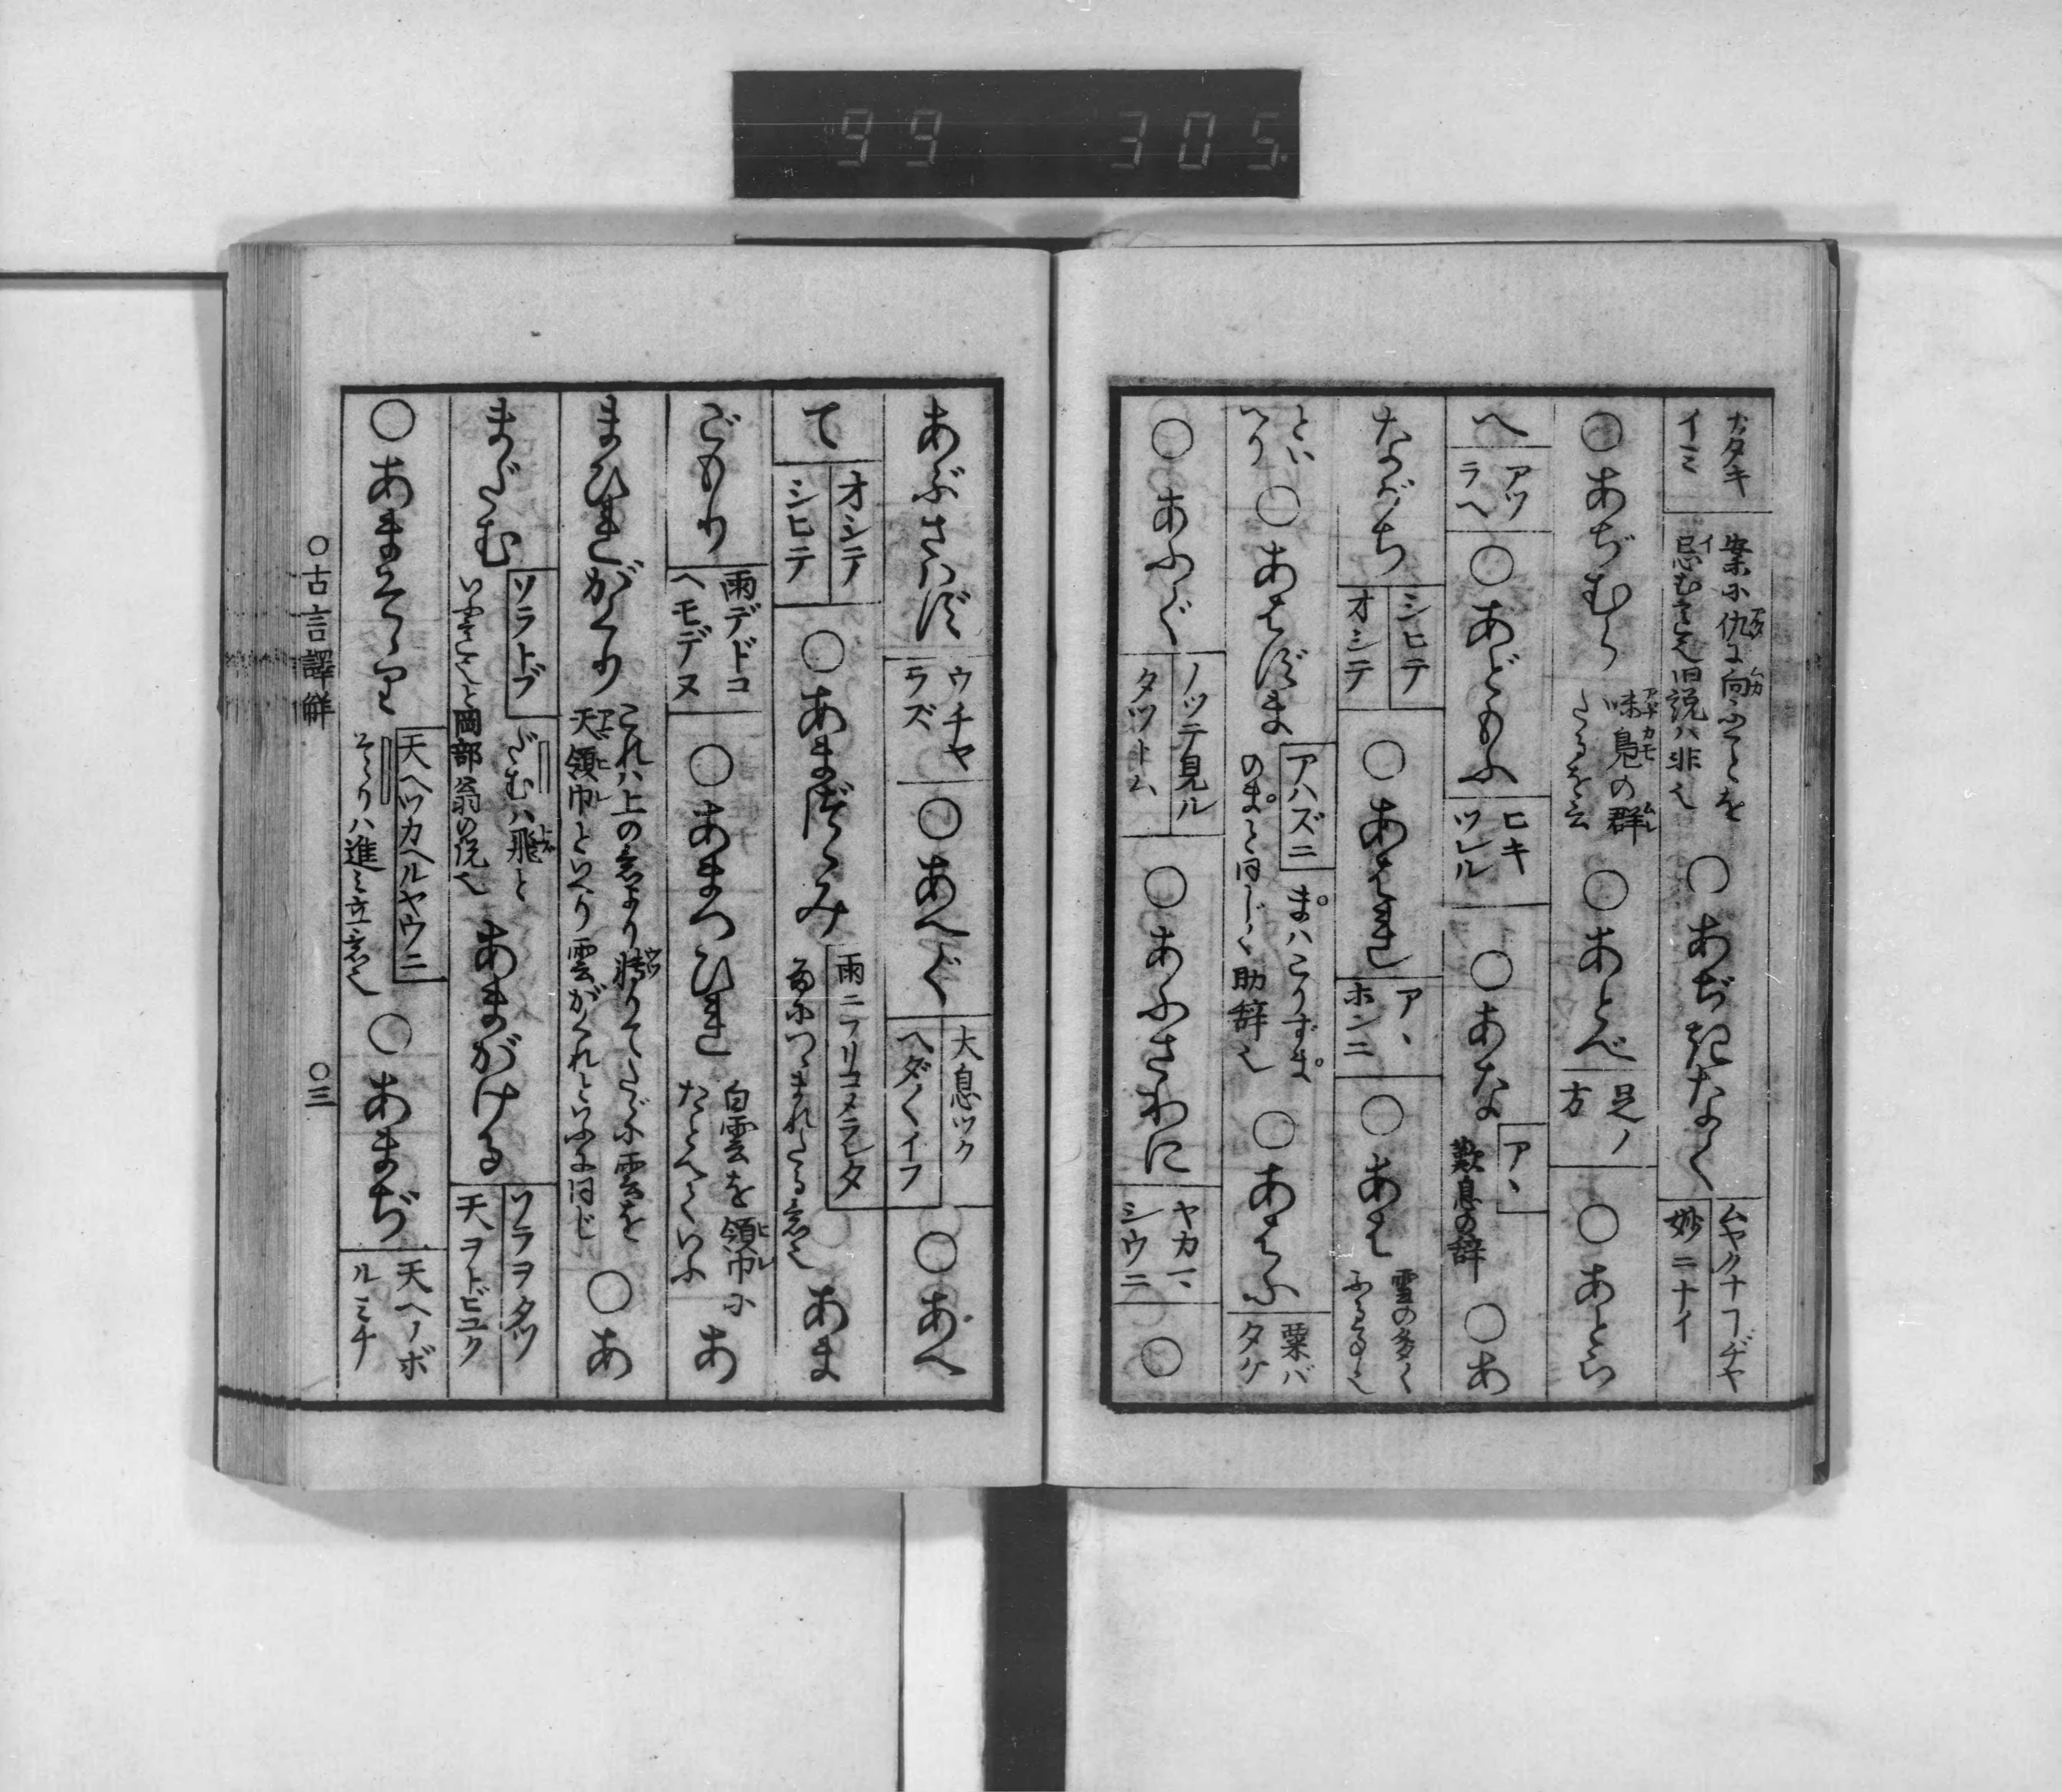 99 305
ナタキ
イミ
案に仇に向ふことを
忌むこと也旧説ハ非也
○あぢきなく
ムヤクナコヂヤ
妙ニナイ
○あぢむら
味鳧の群
たるを云
○あとべ
足ノ
方
○あとら
へ
アツ
ラヘ
○あどもふ
ヒキ
ツレル
○あな
アヽ
歎息の辞
○あ
ながち
シヒテ
オシテ
○あはれ
アヽ
ホンニ
○あは
雪の多く
ふる也
とい
へり
○あはずま
アハズニ
まハこりずま
のまと同じく助辞也
○あはふ
粟バ
タケ
○あふぐ
ノツテ見ル
タツトム
○あふさわに
ヤカマ
シウニ
○
あぶさはず
ウチヤ
ラズ
○あへぐ
大息ツク
ヘダヽイフ
○あへ
て
オシテ
シヒテ
○あまづゝみ
雨ニフリコメラレタ
雨につゝまれたる意也
あま
ごもり
雨デドコ
ヘモデヌ
○あまつひれ
白雲を領巾に
たとへていふ
あ
まひれがくり
これハ上の意より転りてたゞに雲を
天領巾といへり雲がくれといふに同じ
○あ
まだむ
ソラトブ
だむハ飛と
いふこと岡部翁の説也
あまがける
ソラヲタツ
天ヲトビユク
○あまそゝり
天ヘツカヘルヤウニ
そゝりハ進ミ立意也
○あまぢ
天ヘノボ
ルミチ
○古言譯解
○三